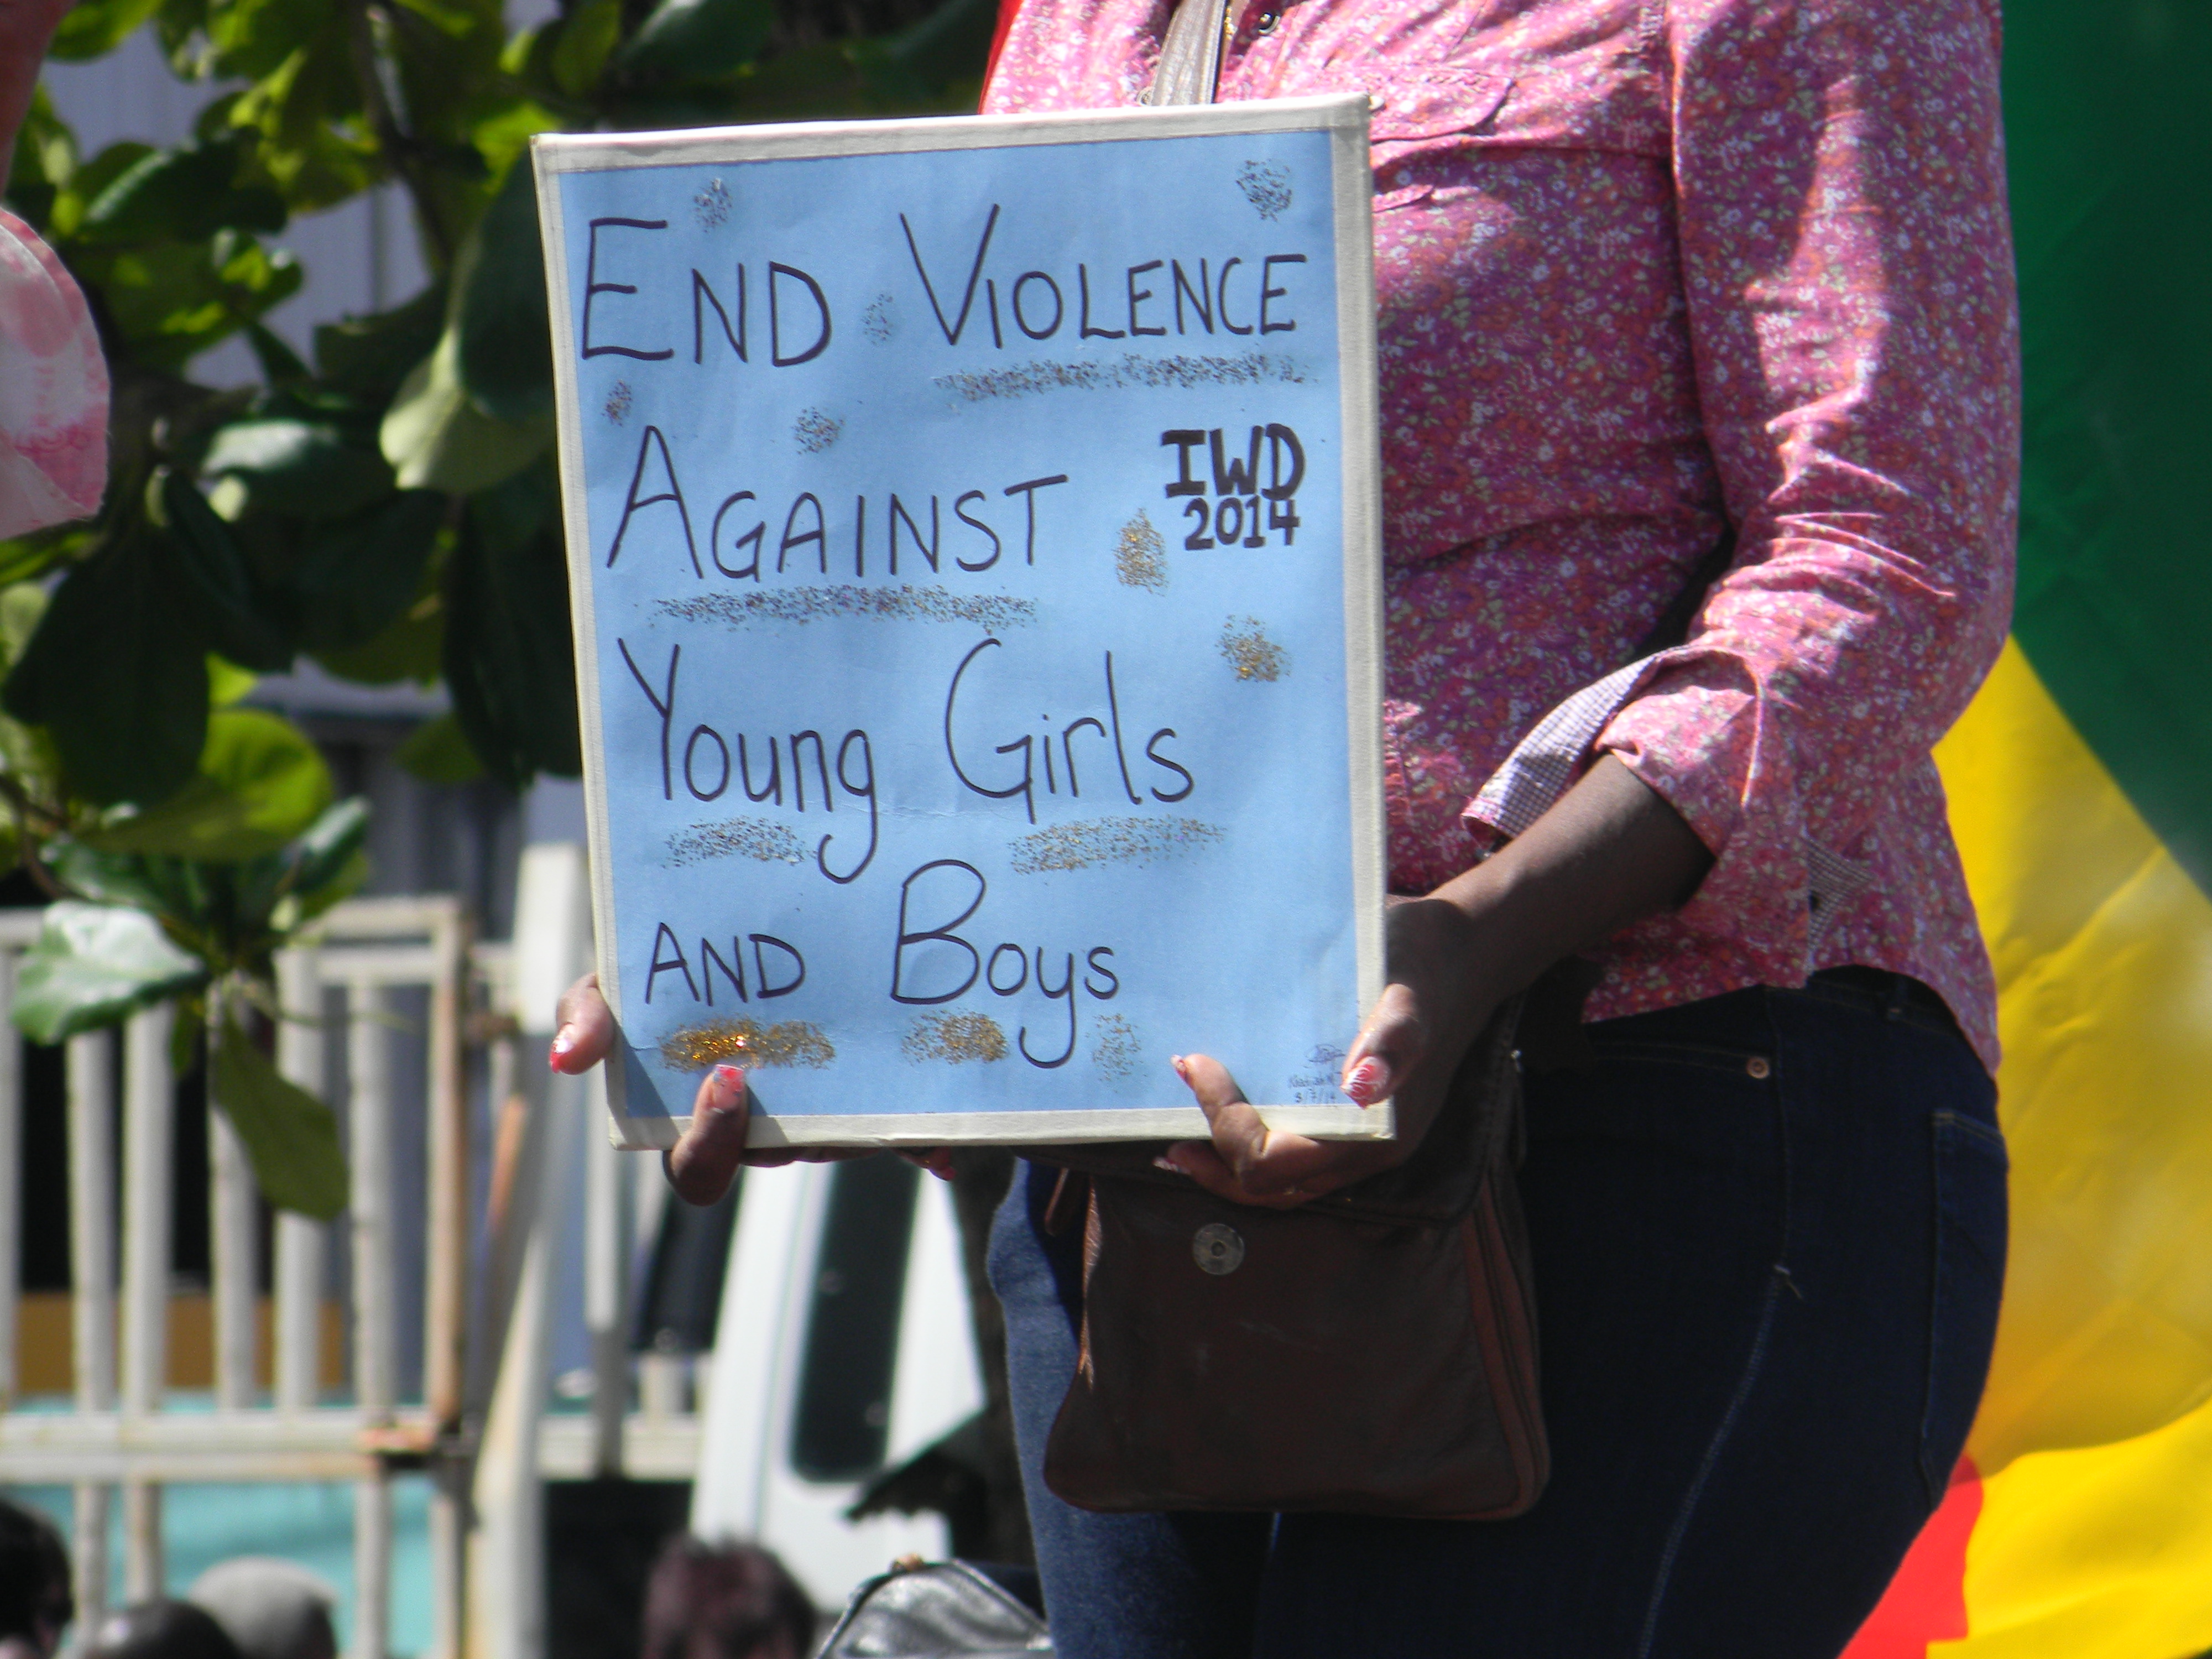 END VIOLENCE
AGAINST
IWD
2014
Young Girls
AND Boys
3/7/14